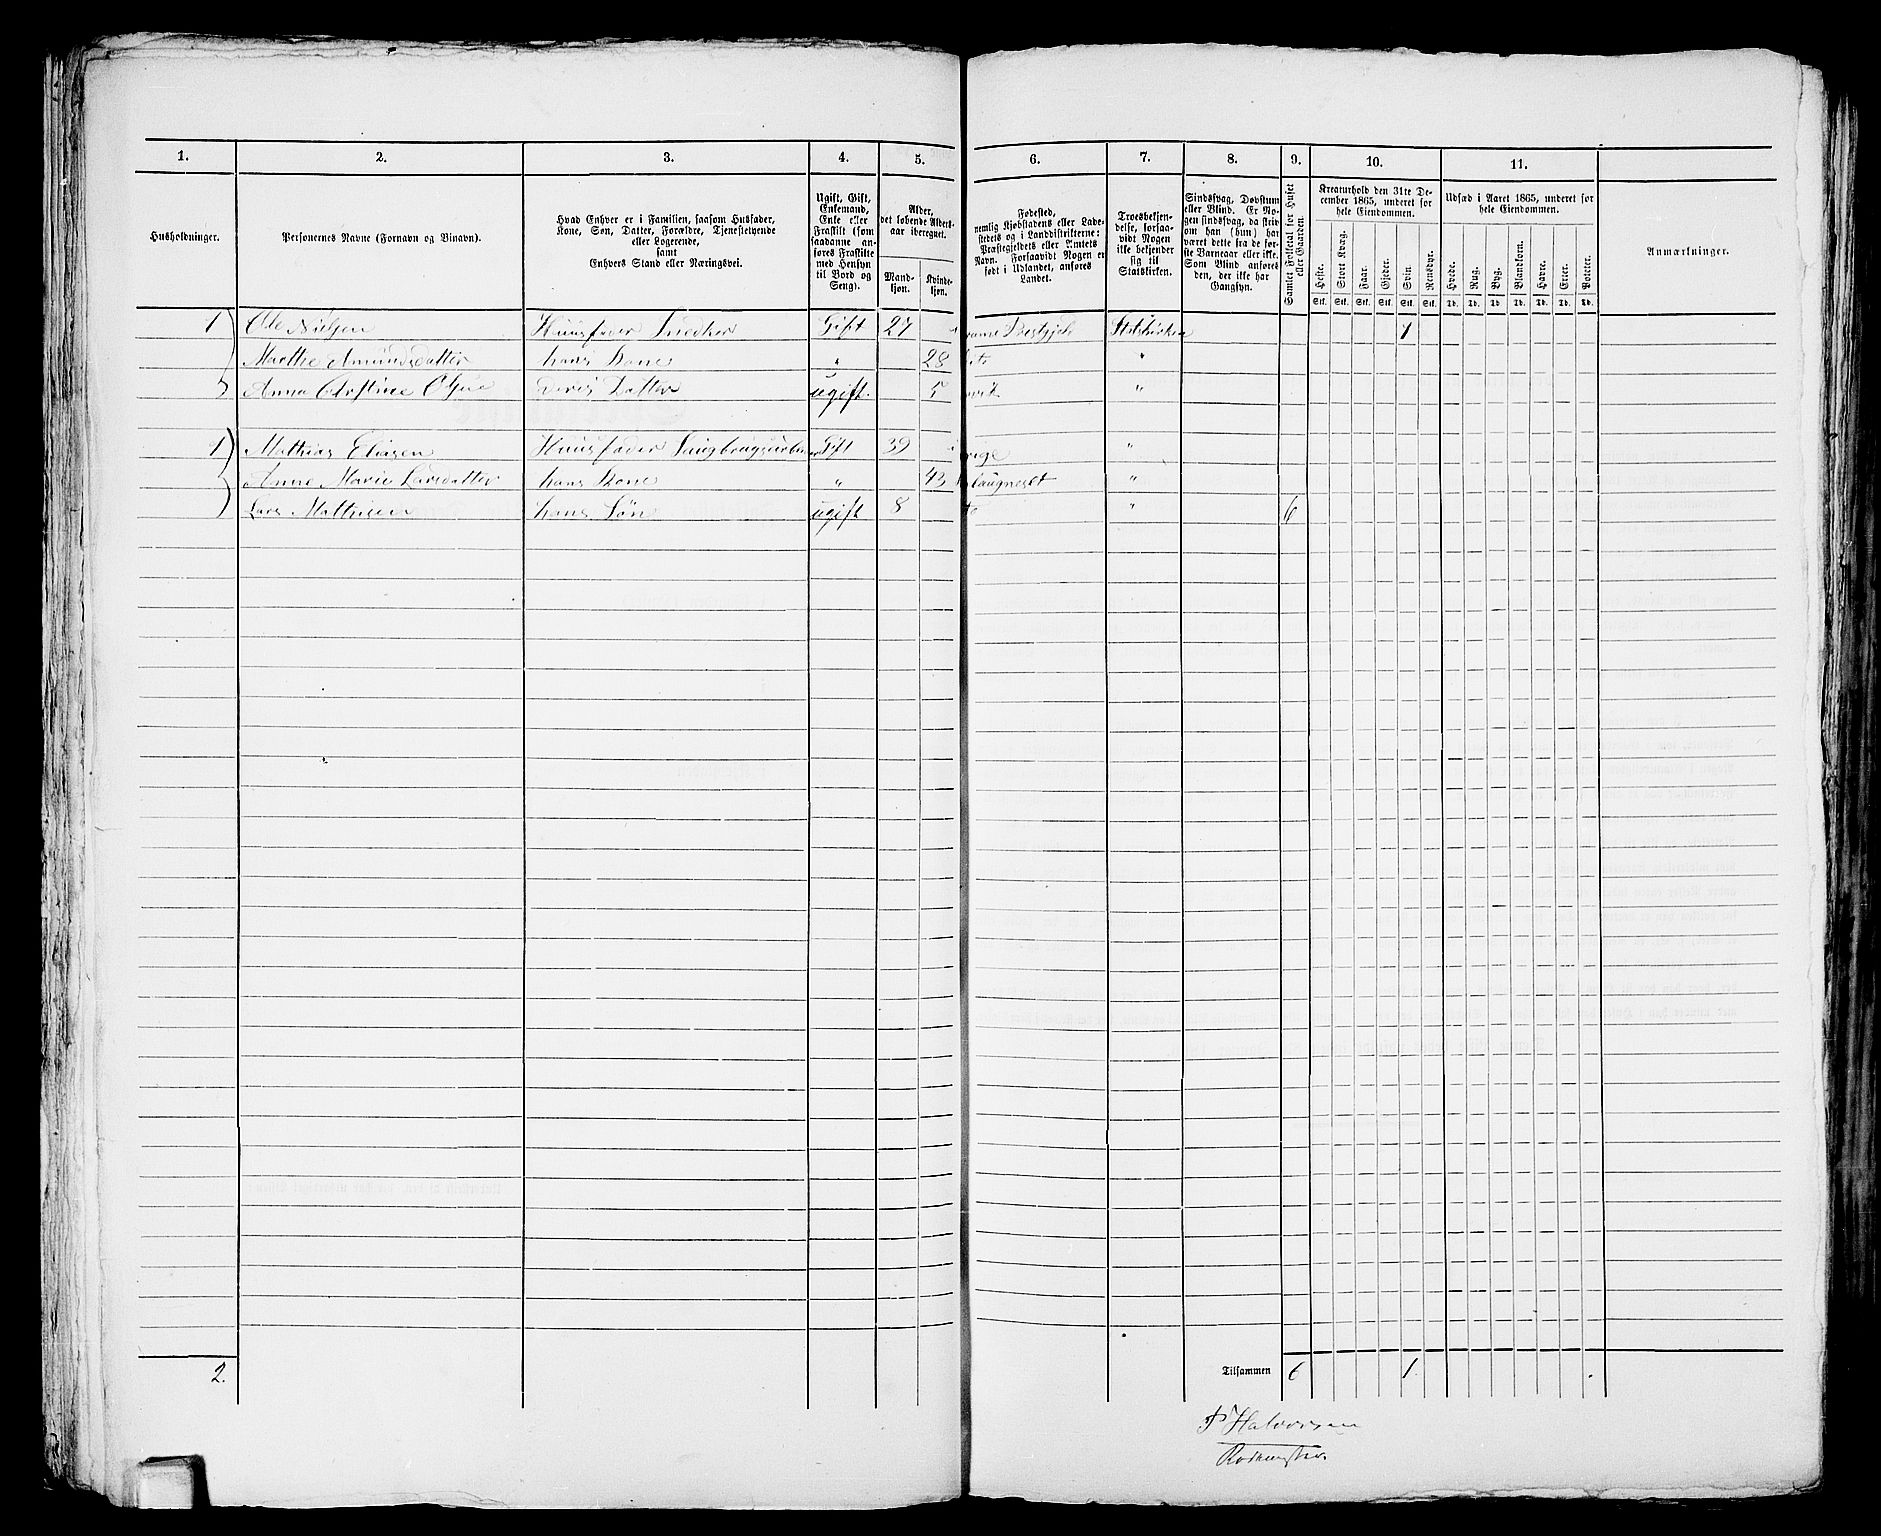 1. 2. 3. 4. 5. 6. 7. 8. 9. 10. 11.
Husholdninger.
Personernes Navne (Fornavn og Binavn).
Hvad Enhver er i Familien, saasom Husfader,
Kone, Søn, Datter, Forældre, Tjenestetyende
eller Logerende,
samt
Enhvers Stand eller Næringsvei.
Ugift, Gift,
Enkemand,
Enke eller
Fraskilt (som
saadanne an-
føres Fraskilte
med Hensyn
til Bord og
Seng).
Alder,
det løbende Alders-
aar iberegnet.
Mand-
kjøn.
Kvinde-
kjøn.
Fødested,
nemlig Kjøbstadens eller Lade-
stedets og i Landdistrikterne:
Præstegjeldets eller Amtets
Navn. Forsaavidt Nogen er
født i Udlandet, anføres
Landet.
Troesbekjen-
delse, forsaa-
vidt Nogen
ikke bekjender
sig til
Statskirken.
Sindssvag, Døvstum
eller Blind. Er No-
gen sindssvag, da skriv
om han (hun) har
været dette fra de før-
ste Barneaar eller ikke.
Som Blind anføres
den, der ikke har
Gangsyn.
Samlet Folketal for Huset
eller Gaarden.
Kreaturhold den 31te De-
cember 1865, underet for
hele Eiendommen.
Heste. Stort Kvæg. Faar. Gjeder. Svin. Rensdyr.
Stk. Stk. Stk. Stk. Stk. Stk.
Udsæd i Aaret 1865, underet for
hele Eiendommen.
Hvede. Rug. Byg. Blandkorn. Havre. Erter. Poteter.
Td. Td. Td. Td. Td. Td. Td.
Anmærkninger.
1 Ole Nielsen Huusfader Snedker Gift 27 Statskirken 1
Marthe Amundsdatter hans Kone " 28 "
Anna Deres Datter ugift. 5 "
1 Mathias Huusfader Gift 39 "
Anne Marie Larsdatter hans Kone " 43 "
Lars Mathisen hans Søn ugift 8 " 6
2. Tilsammen 6 1.
Halvorsen